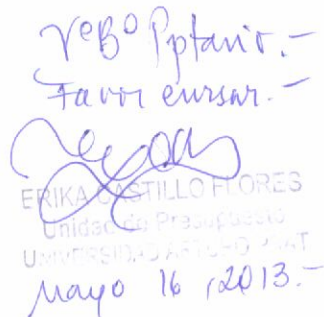 VºBº Pptario.-
Favor cursar.-
ERIKA CASTILLO FLORES
Unidad de Presupuesto
UNIVERSIDAD ARTURO PRAT
Mayo 16, 2013.-